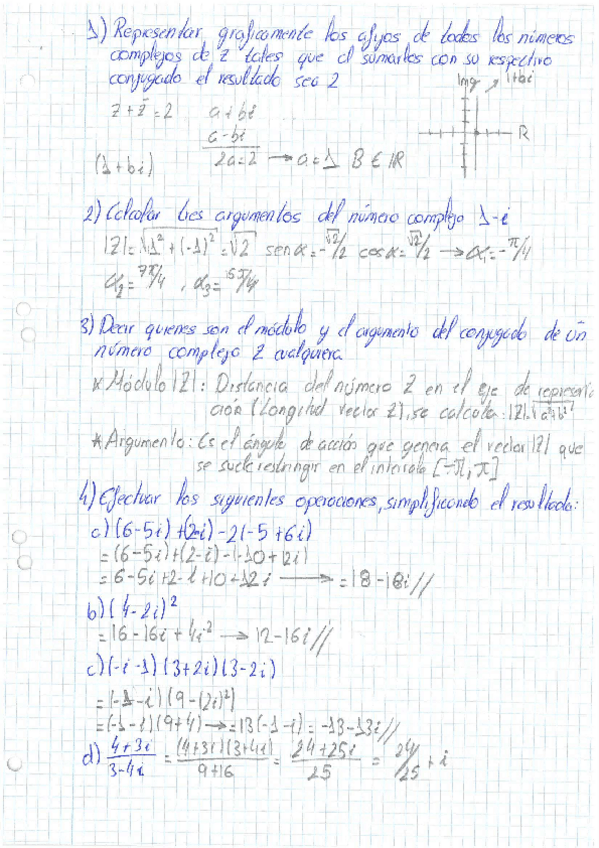 1) Representar graficamente los afijos de todos los números
complejos de Z tales que al sumarlos con su respectivo
conjugado el resultado sea 2
Img 1+bi
z + z̄ = 2 a + bi
a - bi
R
(1+bi) 2a=2 → a=1 B ∈ IR
2) Calcular tres argumentos del número complejo 1-i
|Z|=√1²+(-1)² = √2 sen α = -√2/2 cos α = √2/2 → α₁ = -π/4
α₂ = 7π/4 , α₃ =
3) Decir quienes son el módulo y el argumento del conjugado de un
número complejo Z cualquiera
* Módulo |Z|: Distancia del número Z en el eje de representa
ción (Longitud vector Z), se calcula |Z|=√a²+b²
* Argumento: Es el ángulo de acción que genera el vector |Z| que
se suele restringir en el intervalo [-π, π]
4) Efectuar las siguientes operaciones, simplificando el resultado:
a) (6-5i)+(2-i)-2(-5+6i)
= (6-5i)+(2-i)-(-10+12i)
= 6-5i+2-i+10-12i → = 18-18i//
b) (4-2i)²
= 16-16i+4i² → 12-16i//
c) (-i-1)(3+2i)(3-2i)
= (-1-i)(9-(2i)²)
= (-1-i)(9+4) → = 13(-1-i) = -13-13i//
d) 4+3i/3-4i = (4+3i)(3+4i)/9+16 = 24+25i/25 = 24/25 + i